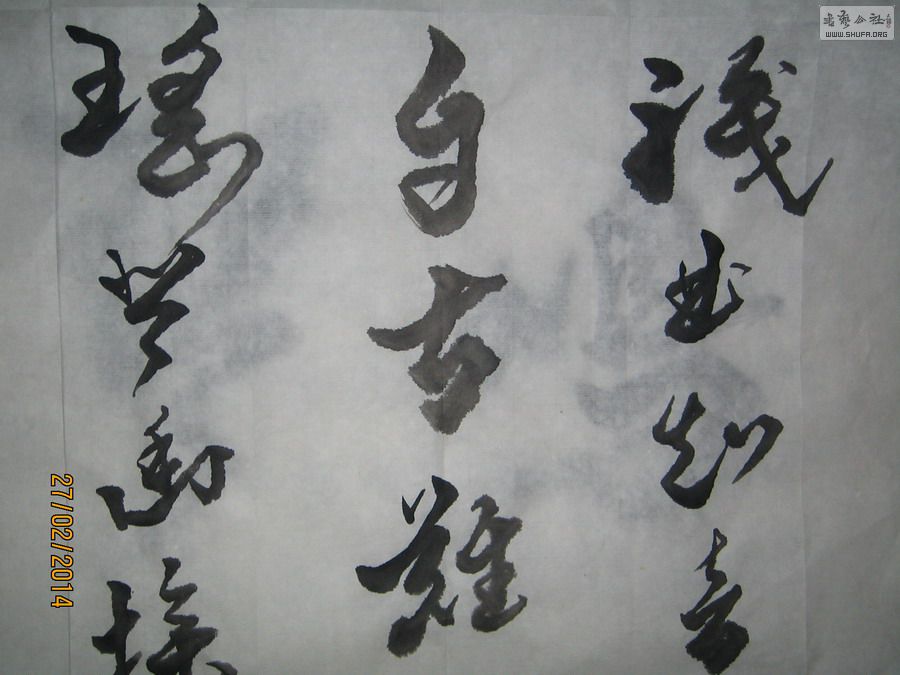 識曲知音
自古難
瑤琴幽操
書藝公社
WWW.SHUFA.ORG
27/02/2014